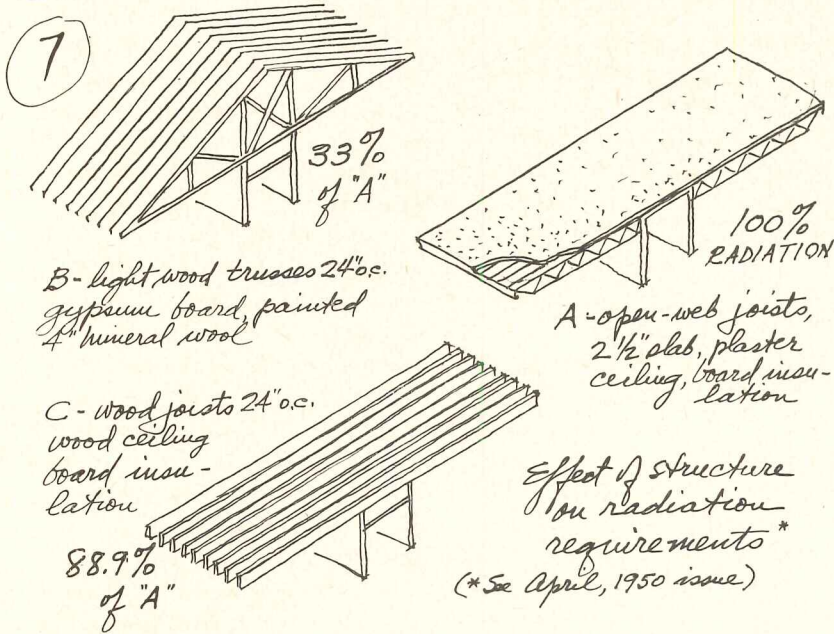 7
33%
of "A"
B - light wood trusses 24" o.c.
gypsum board, painted
4" mineral wool
100%
RADIATION
A - open-web joists,
2 1/2" slab, plaster
ceiling, board insu-
lation
C - wood joists 24" o.c.
wood ceiling
board insu-
lation
88.9%
of "A"
Effect of structure
on radiation
requirements*
(* See April, 1950 issue)